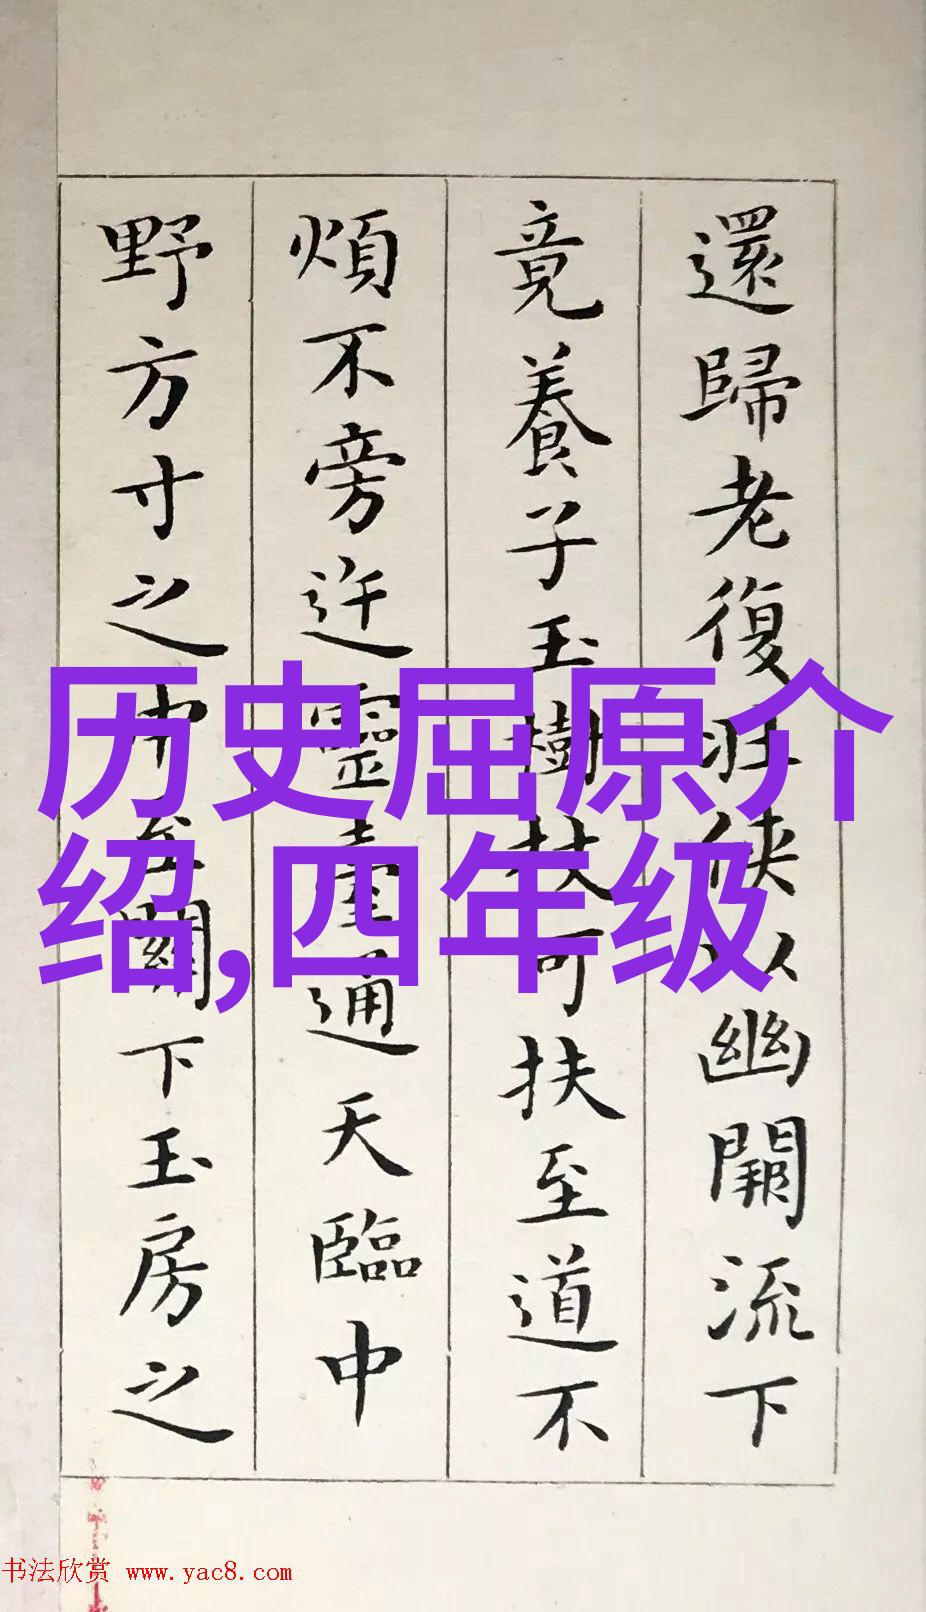 還歸老復壯俠以幽闕流下
竟養子玉樹扶可扶至道不
煩不旁迕靈臺通天臨中
野方寸之中至關下玉房之
历史屈原介
绍,四年级
书法欣赏 www.yac8.com